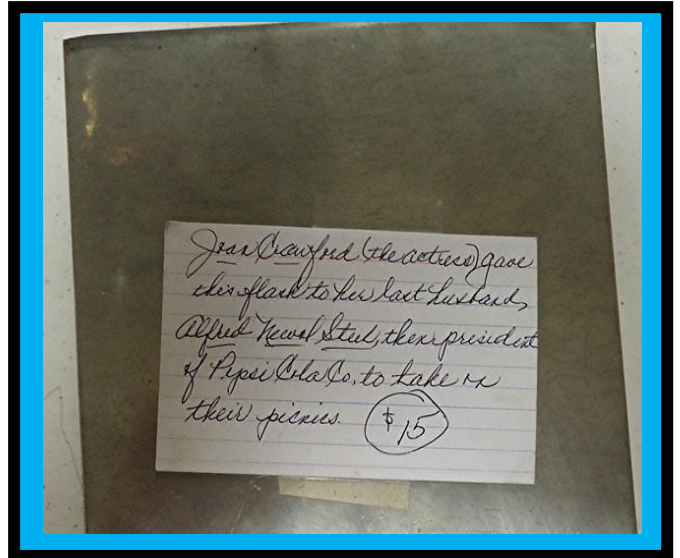 Joan Crawford (the actress) gave
this flask to her last husband,
Alfred Newel Steel, then president
of Pepsi Cola Co, to take on
their picnics. $15